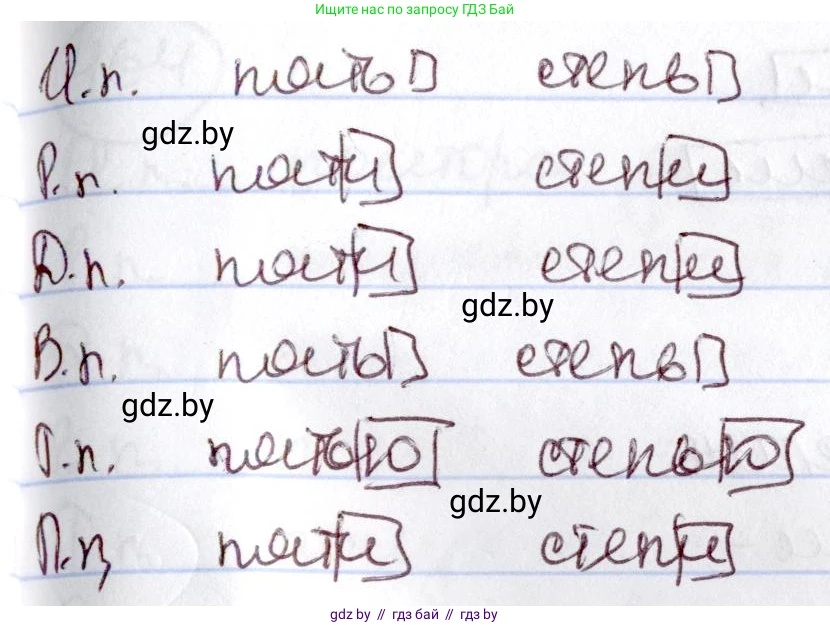 Ищите нас по запросу ГДЗ Бай
И.п. пять степь
gdz.by
Р.п. пяти степи
Д.п. пяти степи
gdz.by
В.п. пять степь
gdz.by
Т.п. пятью степью
gdz.by
П.п. пяти степи
gdz.by // гдз бай // гдз by